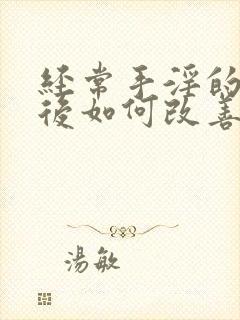 经常手淫的
后如何改善
湯敏